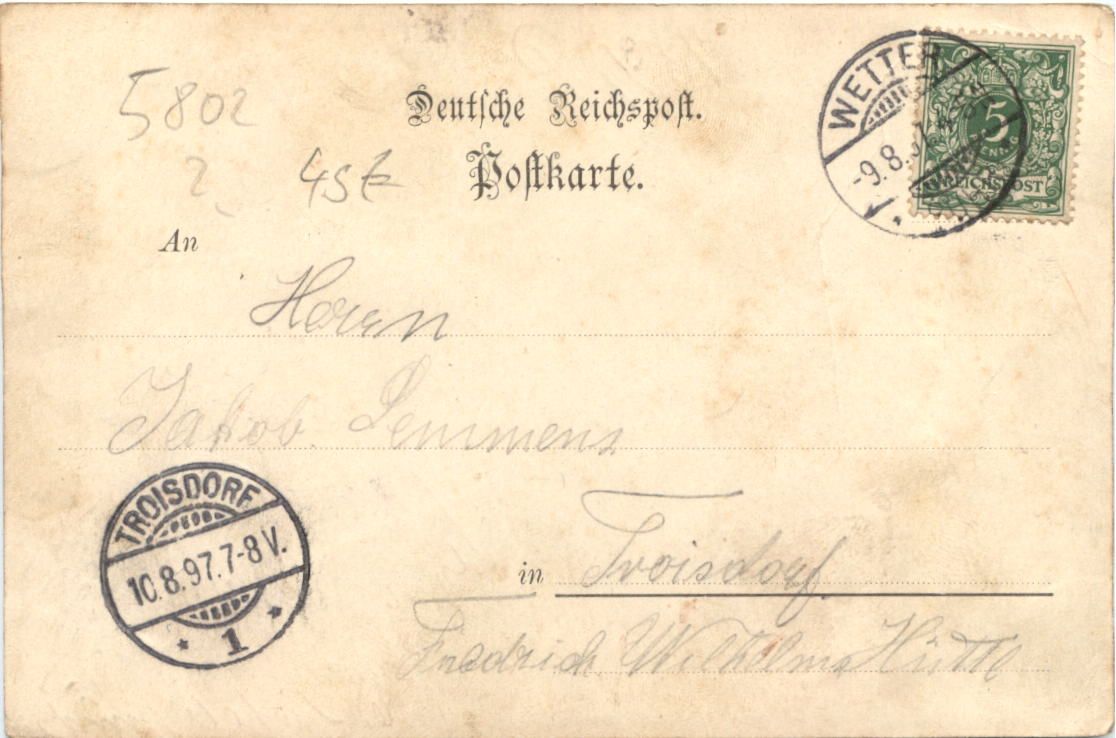 5802
Deutsche Reichspost.
2
45
Postkarte.
WETTER
-9.8.
5
REICHSPOST
An
Herrn
Jakob Lemmens
TROISDORF
10.8.97.7-8V.
* 1 *
in Troisdorf
Friedrich Wilhelms Hütte